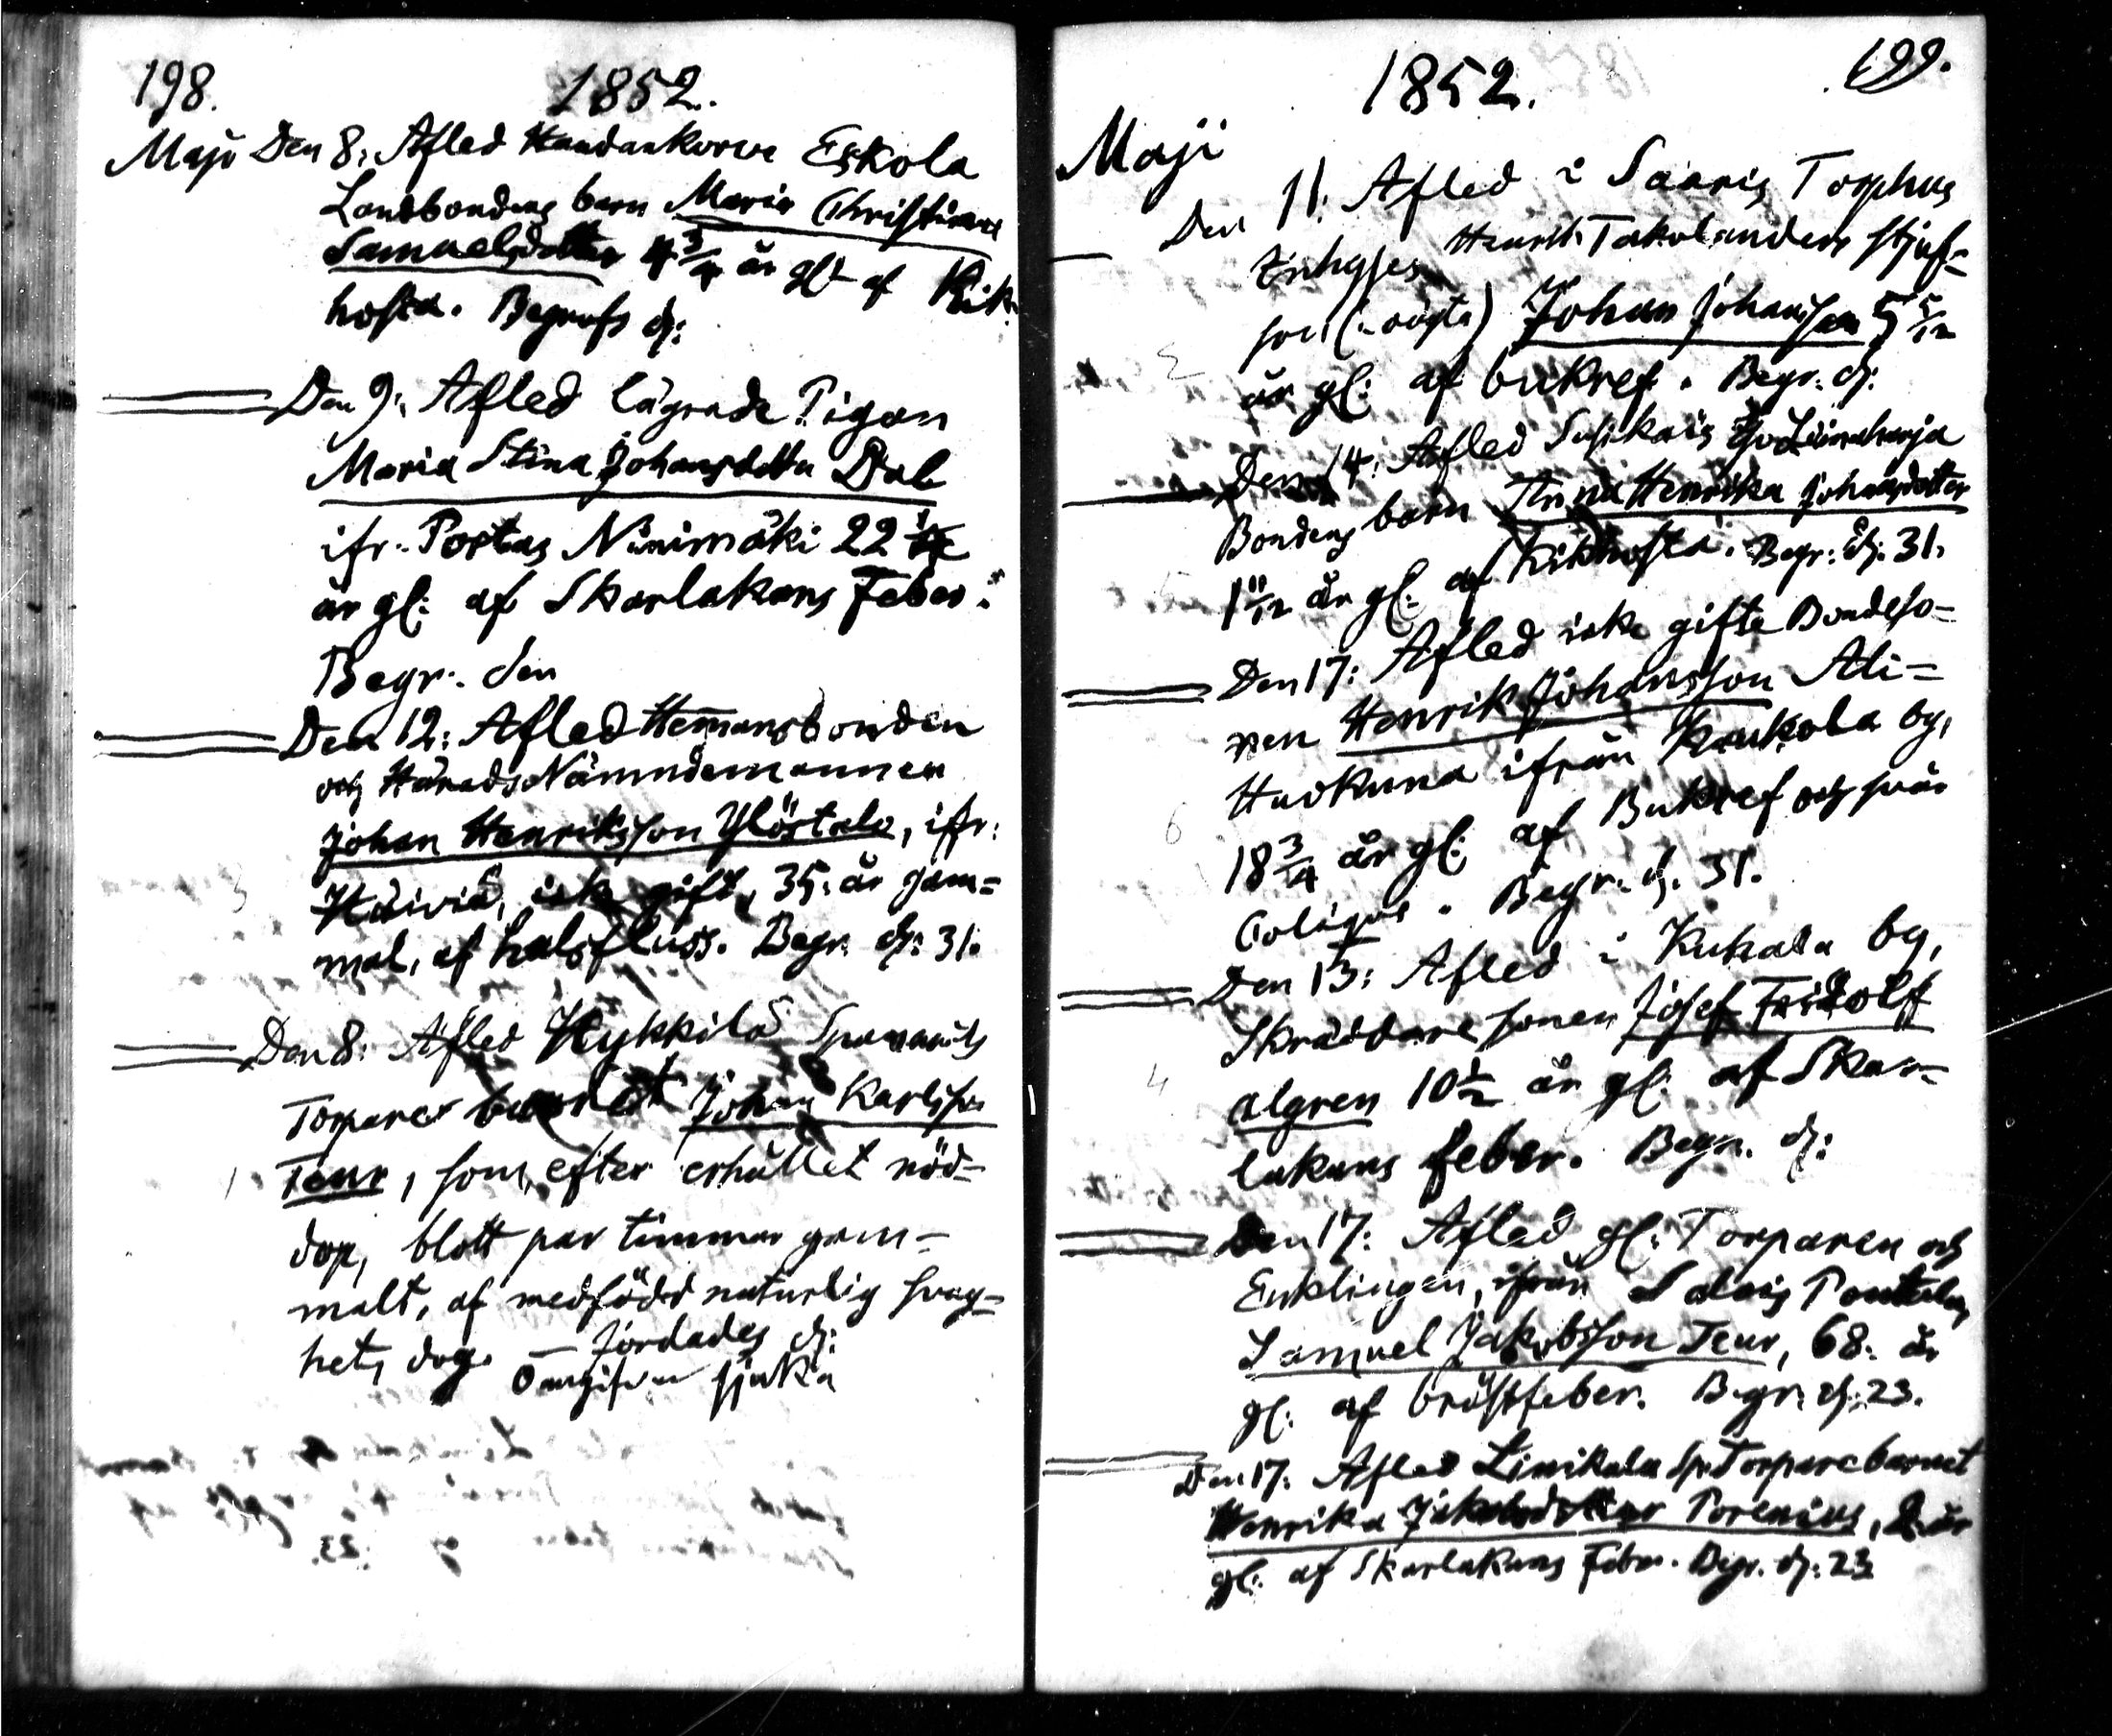 198.
1852.
Maji Den 8: Afled Handankorwe Eskola
Landbondens barn Maria Christina
Samuelsdotter 4 3/4 år gl: af Kik-
hosta. Begrofs d:
Den 9: Afled lägrade Pigan
Maria Stina Johansdotter Dal
ifr: Portas Niinimäki 22
år gl: af Skarlakans Feber.
Begr. den
Den 12: Afled Hemansbonden
och Härads Nämndemannen
Johan Henriksson Ylöstalo, ifr:
gift, 35. år gam=
mal, af halsfluss. Begr. d: 31.
Den 8: Afled Hykkilä
Torpare barnet Johan Karlsson
Teur, som, efter erhållet nöd-
dop, blott par timmar gam-
malt, af medfödd naturlig svag=
het, dog. — Jordades d:
Oangifven sjuka
1852.
199.
Maji
Den 11: Afled i Saaris Torphus
Inhyses Henrik Takolanders stjuf=
son (oägta) Johan Johansson 5 5/12
år gl: af bukref. Begr. d:
Den 14: Afled
Bondens barn Anna Henrika Johansdotter
1 11/12 år gl: af Kikhosta. Begr: d: 31.
Den 17: Afled icke gifte Bondeso-
nen Henrik Johansson Ali=
Huokuna ifrån Kaukola by,
18 3/4 år gl: af Bukref och svår
Colique. Begr. d. 31.
Den 13: Afled i Kuhala by,
Skräddare sonen Josef Fridolf
algren 10 1/2 år gl: af Skar=
lakans feber. Begr. d:
Den 17: Afled gl: Torparen och
Enklingen, ifrån Salois
Samuel Jakobsson Teur, 68. år
gl: af bröstfeber. Begr. d: 23.
Den 17: Afled Linikala Sp: Torparebarnet
Henrika Jakobsdotter Porenius, 2 år
gl: af Skarlakans Feber. Begr. d: 23